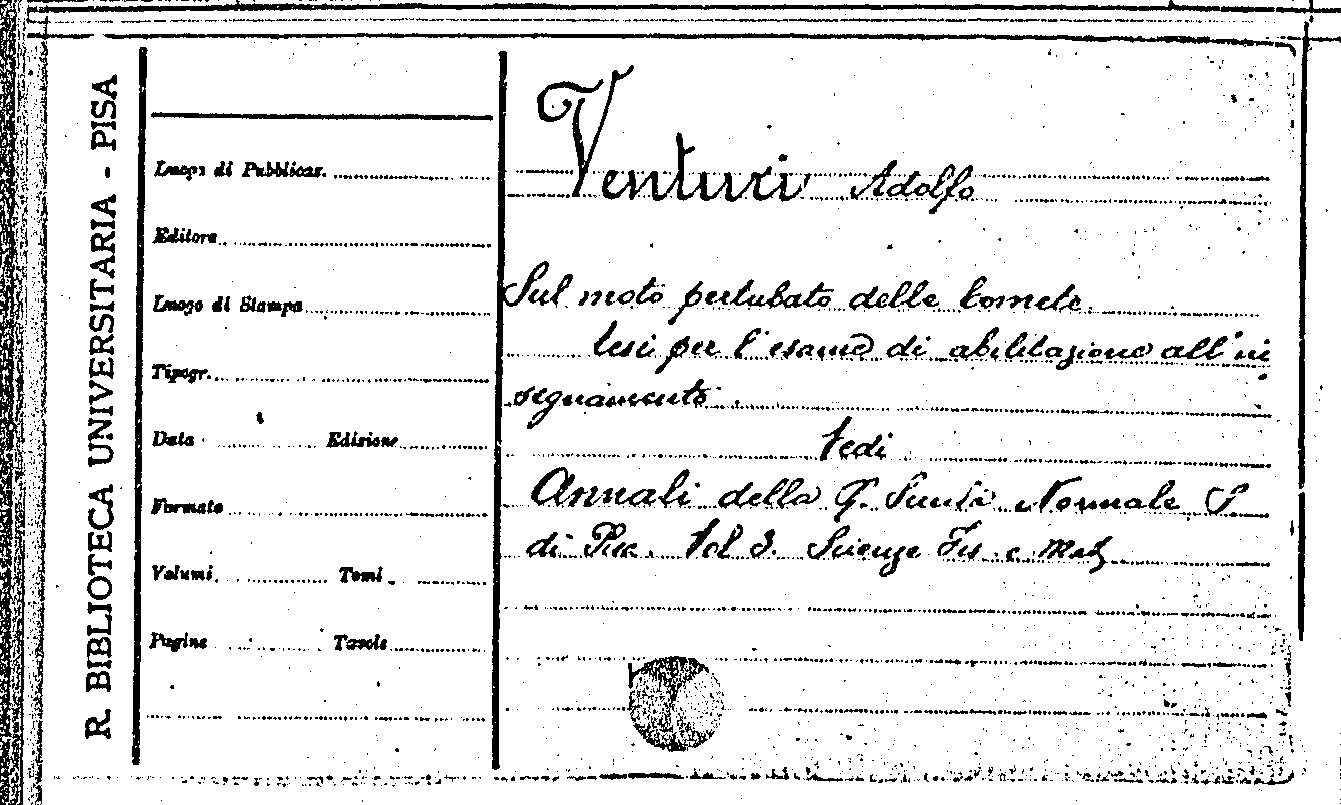 R. BIBLIOTECA UNIVERSITARIA - PISA
Luogo di Pubblicaz.
Editore
Luogo di Stampa
Tipogr.
Data Edizione
Formato
Volumi Tomi
Pagine Tavole
Venturi Adolfo
Sul moto pertubato delle Comete.
Tesi per l'esame di abilitazione all'in
segnamento.
Vedi
Annali della R. Scuola Normale S.
di Pisa. Vol 3. Scienze Fis. e Mat